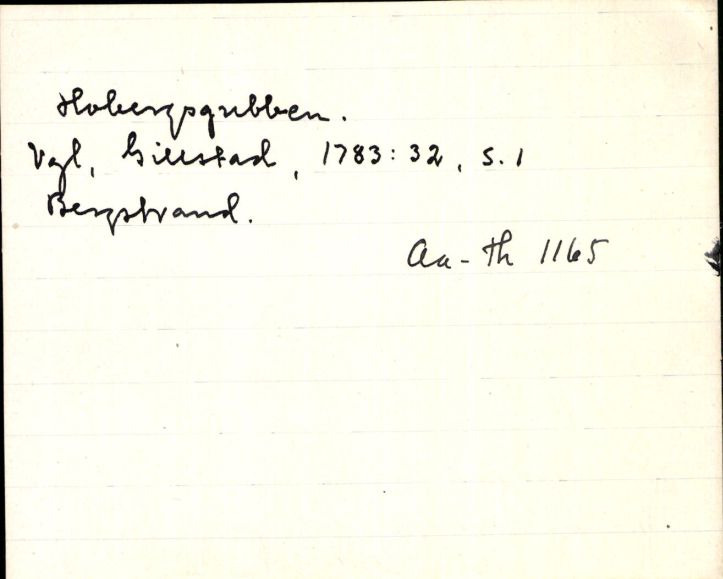 Hobergsgubben.
Vgl, Gillstad, 1783:32, S. 1
Bergstrand.
Aa-Th 1165